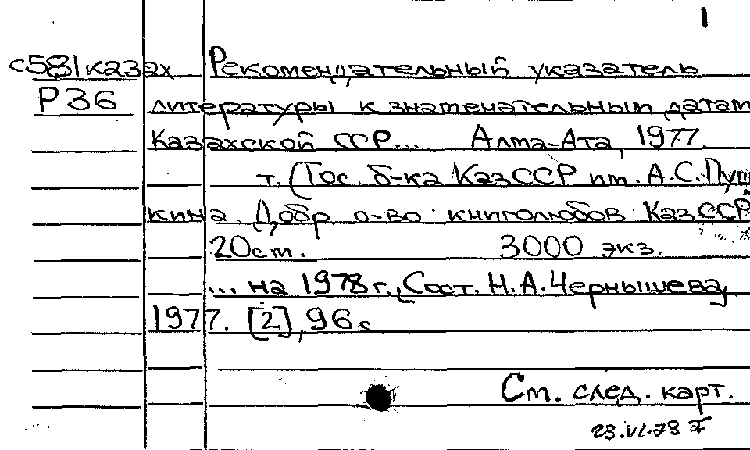 1
с581казах Рекомендательный указатель
Р36 литературы к знаменательным датам
Казахской ССР... Алма-Ата, 1977.
т. (Гос. б-ка КазССР им. А.С.Пуш
кина. Добр. о-во книголюбов КазССР
20см. 3000 экз.
... на 1978г. [Сост. Н.А.Чернышева]
1977. [2], 96 с
См. след. карт.
23.VI.78